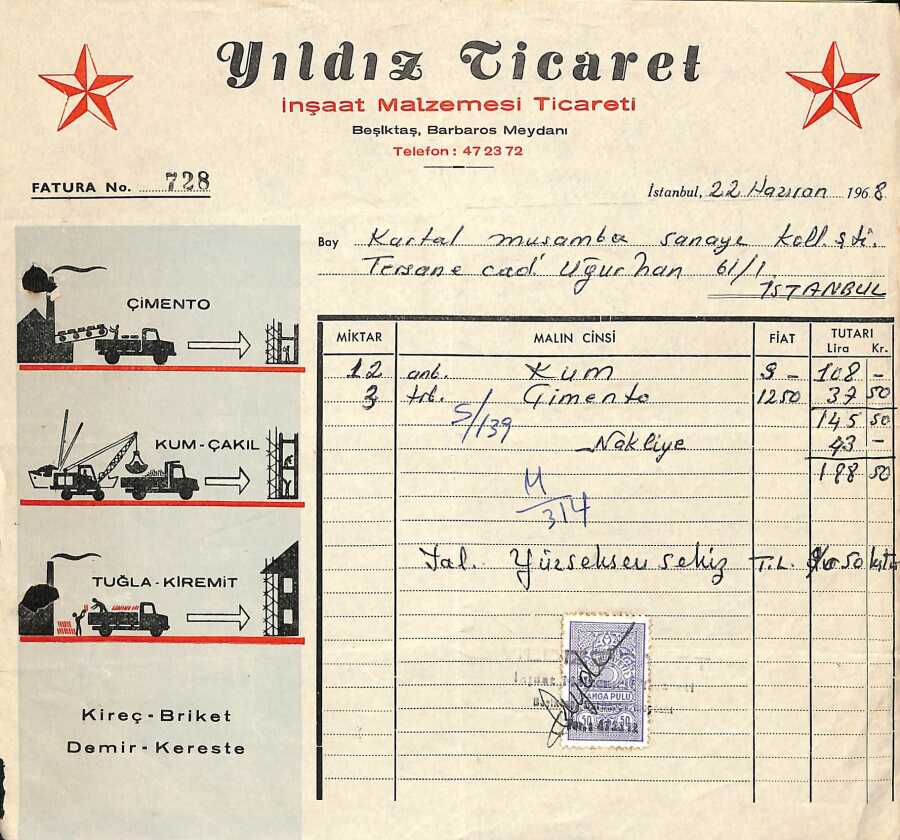 Yıldız Ticaret
İnşaat Malzemesi Ticareti
Beşiktaş, Barbaros Meydanı
Telefon : 47 23 72
FATURA No. 728
İstanbul, 22 Haziran 1968
Bay Kartal muşamba sanaye koll. şti.
Tersane cad. Uğur han 61/1
İSTANBUL
ÇİMENTO
KUM-ÇAKIL
TUĞLA-KİREMİT
Kireç - Briket
Demir - Kereste
MİKTAR MALIN CİNSİ FİAT TUTARI
Lira Kr.
12 anb. Kum 9 - 108 -
3 trb. Çimento 1250 37 50
S/139 145 50
Nakliye 43 -
188 50
M/314
Yal. Yüzseksen sekiz T.L. 50
DAMGA PULU
50 50
472372